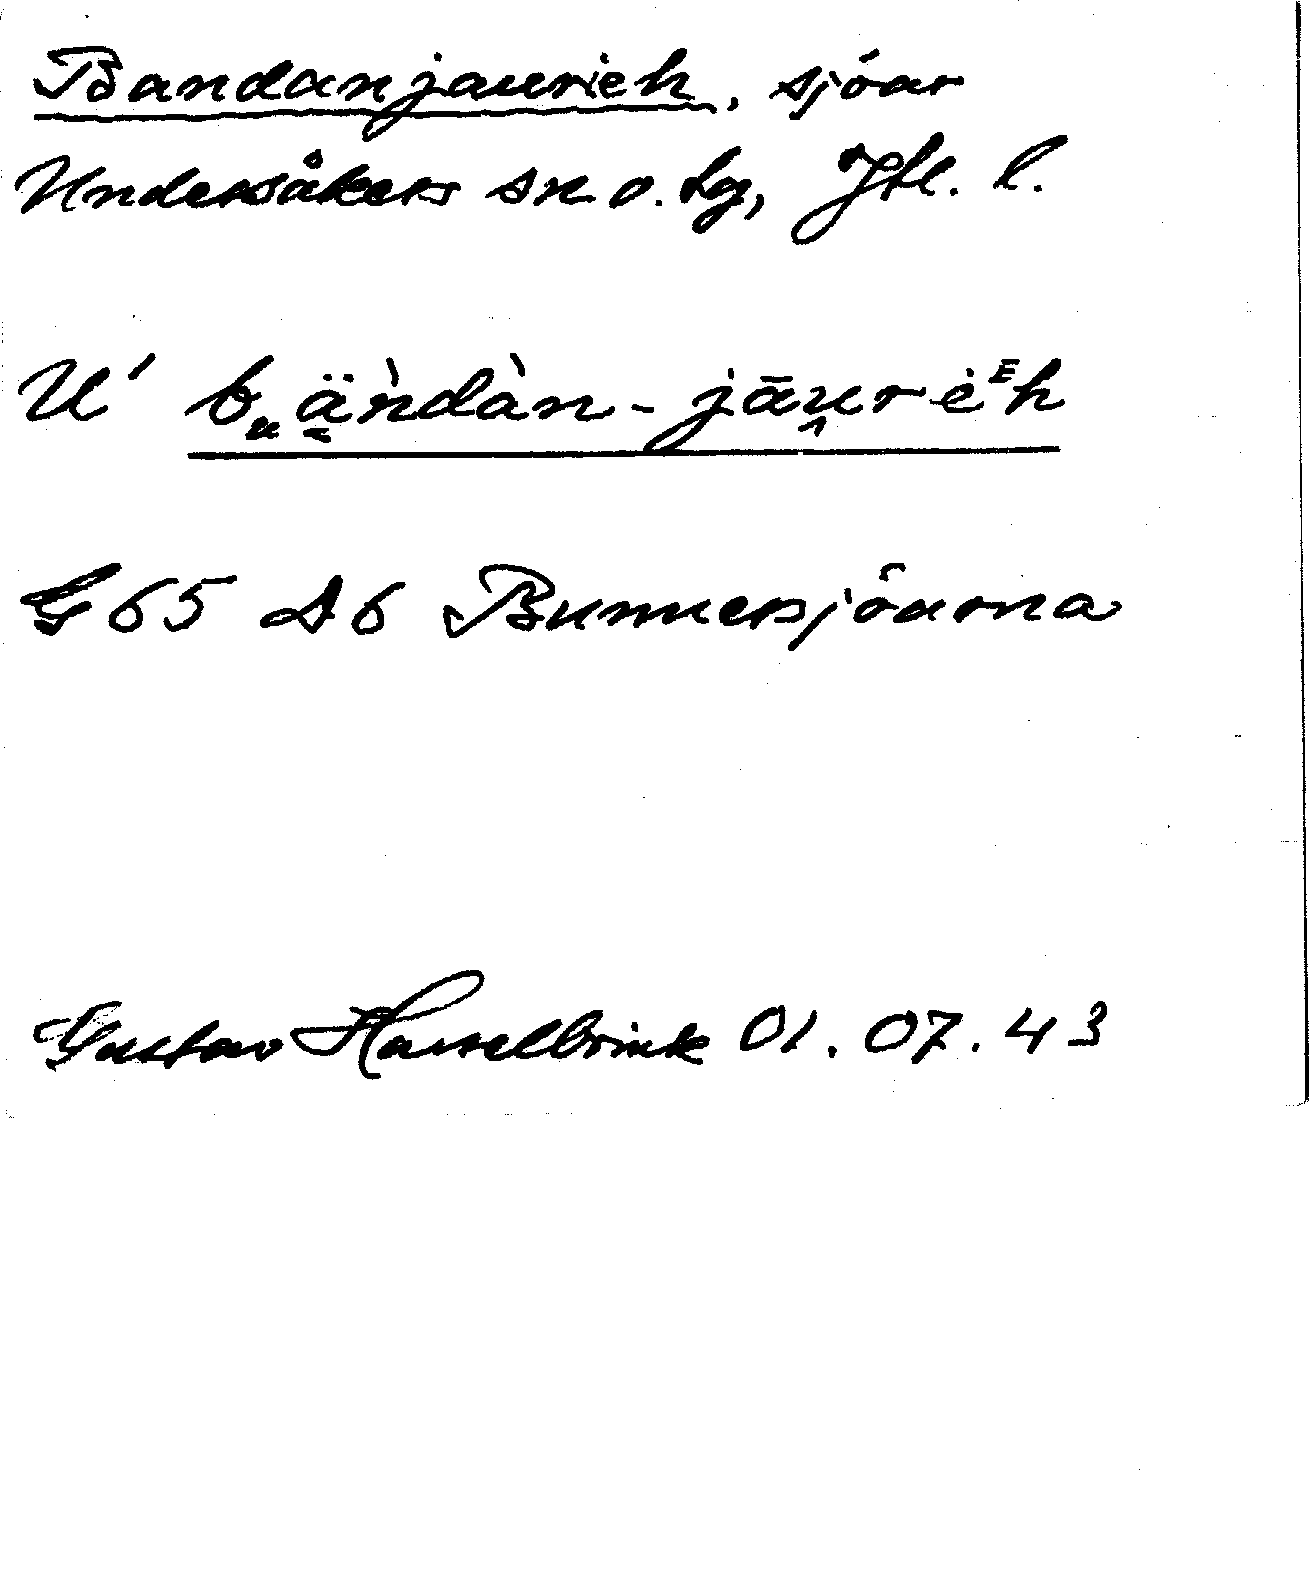 Bandanjaurieh, sjöar
Undersåkers sn o. tg, Jtl. l.
U' bᵤä̱ǹdàn-jāu̯rėᴱh
G 65 S6 Bunnersjöarna
Gustav Hasselbrink 01.07.43